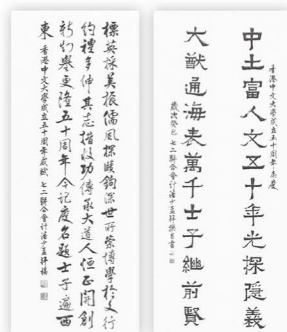 香港中文大學成立五十周年志慶
中土富人文五十年光探隱義
大猷通海表萬千士子繼前賢
歲次癸巳 七二聯合會計潘少孟拜撰書
標英採美振儒風探賾鈎深世所崇博學於文行
約禮多伸其志 功傳承大道人恒正開創
新 譽更隆五十周年今記慶名題士子遍西
東 香港中文大學成立五十周年 七二聯合會計潘少孟拜稿